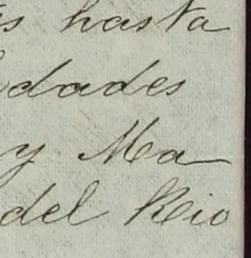 s hasta
dades
y Ma
del Rio